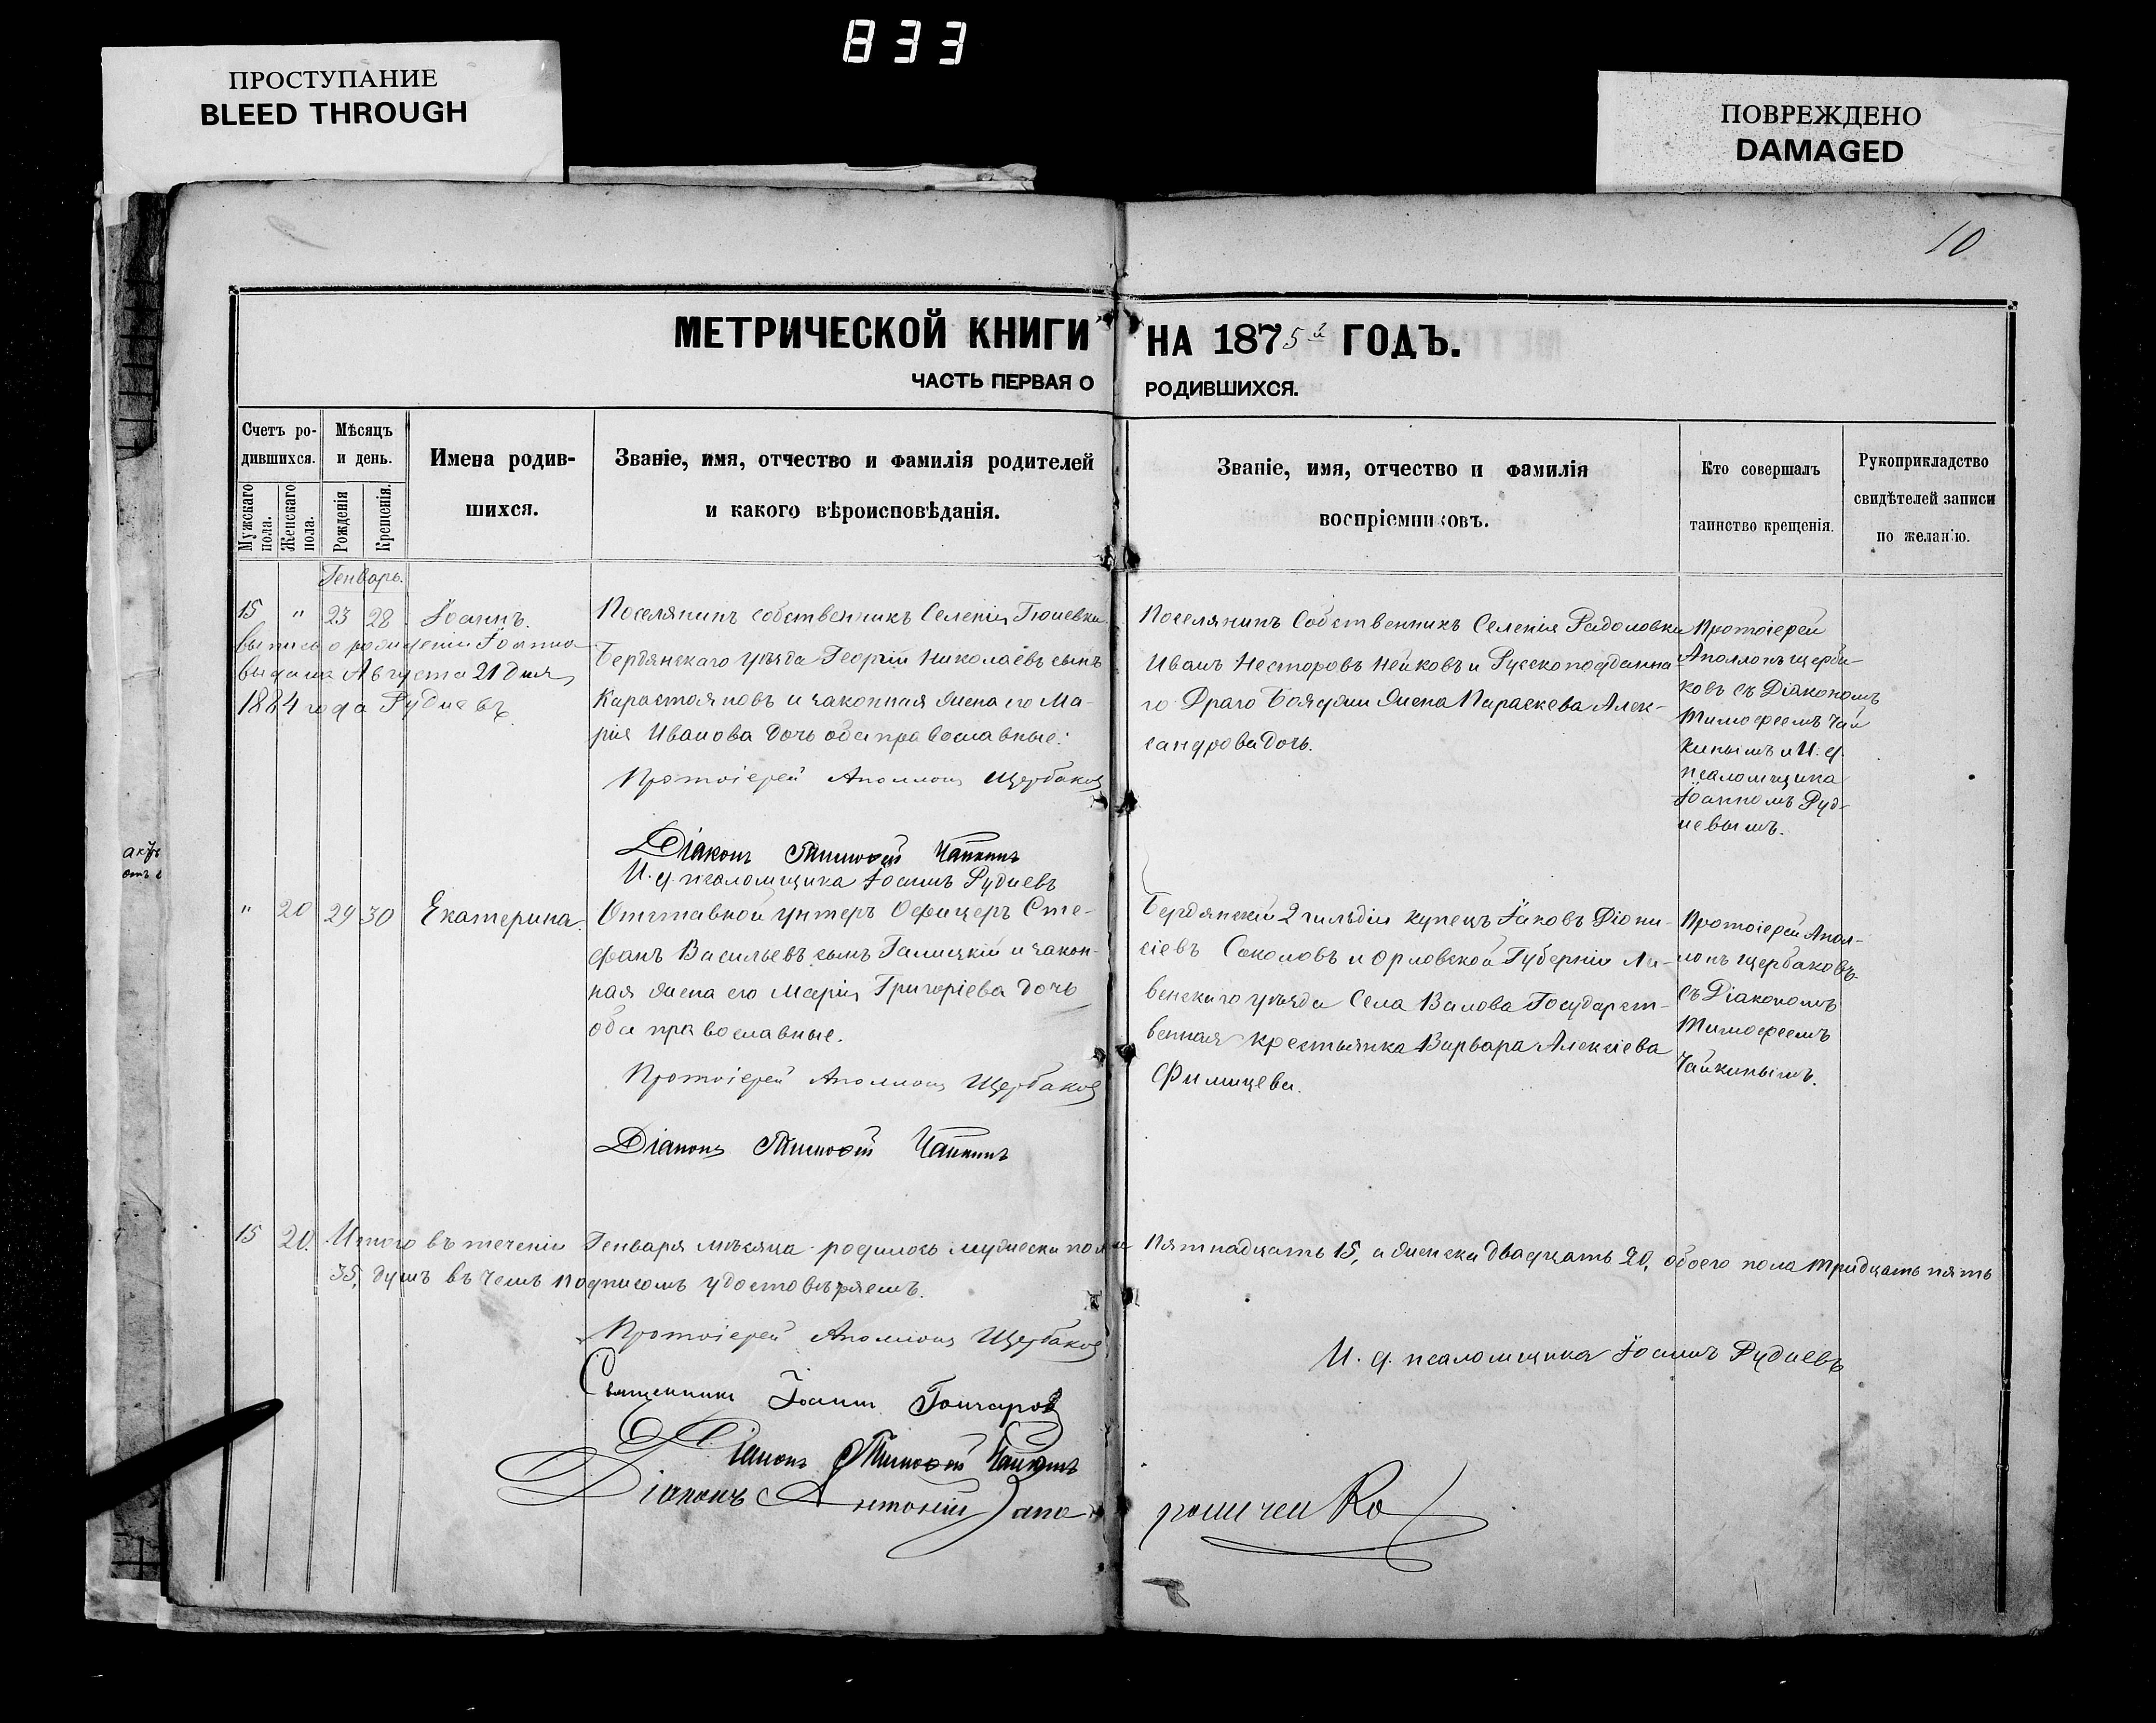 833
ПРОСТУПАНИЕ
BLEED THROUGH
ПОВРЕЖДЕНО
DAMAGED
10
МЕТРИЧЕСКОЙ КНИГИ НА 1875й ГОДЪ.
ЧАСТЬ ПЕРВАЯ О РОДИВШИХСЯ.
Счетъ ро-
дившихся.
Мужскаго пола.
Женскаго пола.
Мѣсяцъ
и день.
Рожденія
Крещенія.
Имена родив-
шихся.
Званіе, имя, отчество и фамилія родителей
и какого вѣроисповѣданія.
Званіе, имя, отчество и фамилія
воспріемниковъ.
Кто совершалъ
таинство крещенія.
Рукоприкладство
свидѣтелей записи
по желанію.
Генварь.
15 " 23 28 Іоаннъ.
выпись о рожденіи Іоанна
выдана Августа 21 дня
1884 года Рудневъ
Поселянинъ собственникъ Селенія Гюневки
Бердянскаго уѣзда Георгій Николаевъ сынъ
Карастояновъ и законная жена его Ма-
рія Иванова дочь оба православные.
Протоіерей Аполлонъ Щербаковъ
Діаконъ Тимофей Чайкинъ
И. д. псаломщика Іоаннъ Рудневъ
Поселянинъ Собственникъ Селенія Радоловки
Иванъ Несторовъ Нейковъ и Русскоподданна
го Драго Бояджи жена Параскева Алек-
сандрова дочь.
Протоіерей
Аполлонъ Щерба-
ковъ съ Діакономъ
Тимофеемъ Чай
кинымъ и И. д.
псаломщика
Іоанномъ Руд-
невымъ.
" 20 29 30 Екатерина.
Отставной унтеръ Офицеръ Сте-
фанъ Васильевъ сынъ Галицкій и закон-
ная жена его Марія Григоріева дочь
оба православные.
Протоіерей Аполлонъ Щербаковъ
Діаконъ Тимофей Чайкинъ
Бердянскій 2 гильдіи купецъ Іаковъ Діони-
сіевъ Соколовъ и Орловской Губерніи Ли-
венскаго уѣзда Села Валова Государст-
венная крестьянка Варвара Алексіева
Филицева.
Протоіерей Апол-
лонъ Щербаковъ
съ Діакономъ
Тимофеемъ
Чайкинымъ.
15 20. Итого въ теченіи Генваря мѣсяца родилось мужеска пола Пятнадцать 15, а женска двадцать 20, обоего пола тридцать пять
35, душъ въ чемъ подписомъ удостовѣряемъ.
Протоіерей Аполлонъ Щербаковъ
И. д. псаломщика Іоаннъ Рудневъ
Священникъ Іоаннъ Гончаровъ
Діаконъ Тимофей Чайкинъ
Діаконъ Антоній Запорощенко